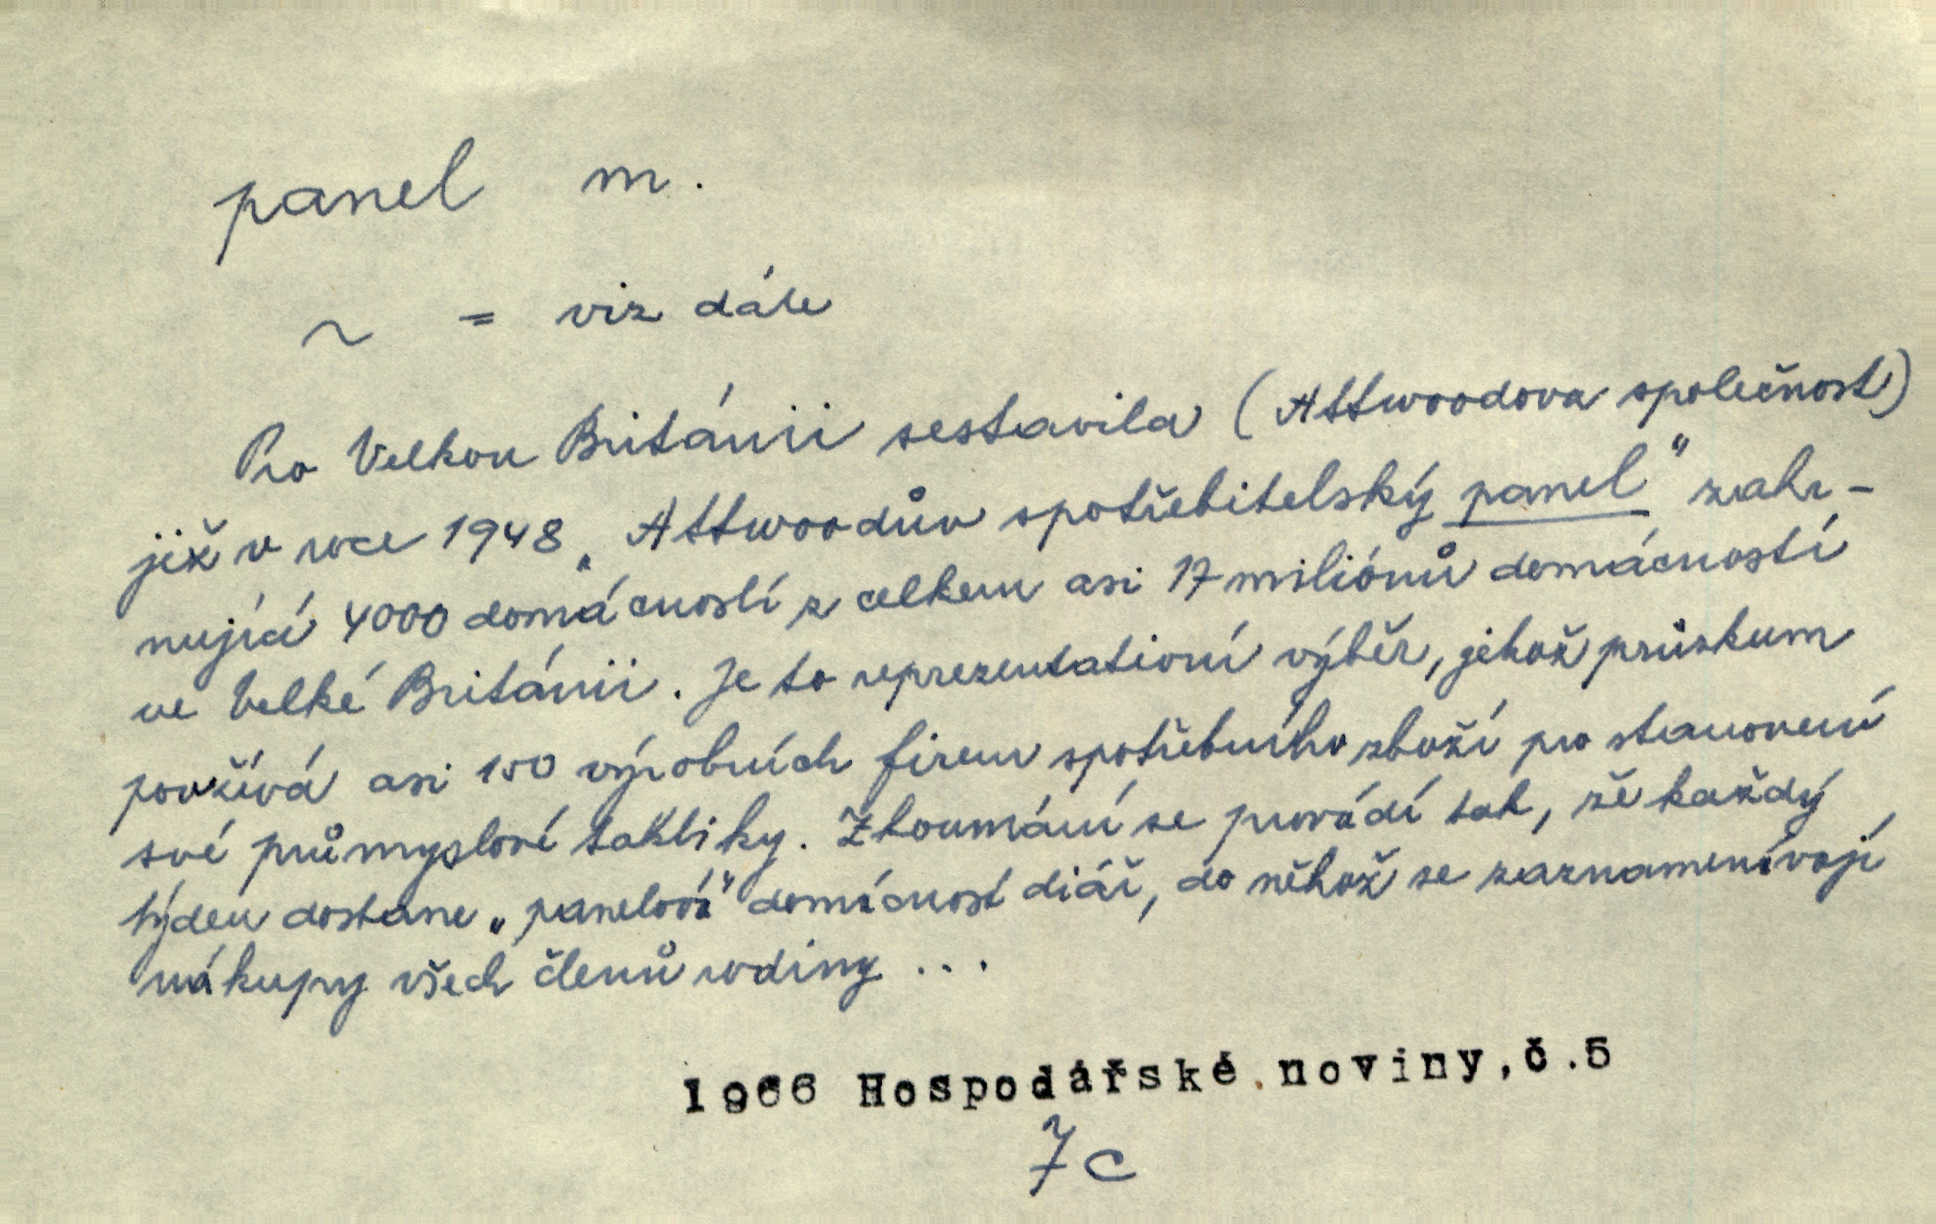 panel m.
~ = viz dále
Pro Velkou Británii sestavila (Attwoodova společnost)
již v roce 1948 „Attwoodův spotřebitelský panel" zahr-
nující 4000 domácností z celkem asi 17 miliónů domácností
ve Velké Británii. Je to reprezentační výběr, jehož průzkum
používá asi 150 výrobních firem spotřebního zboží pro stanovení
své průmyslové taktiky. Zkoumání se provádí tak, že každý
týden dostane „panelová" domácnost diář, do něhož se zaznamenávají
nákupy všech členů rodiny ...
1966 Hospodářské noviny,č.5
7c